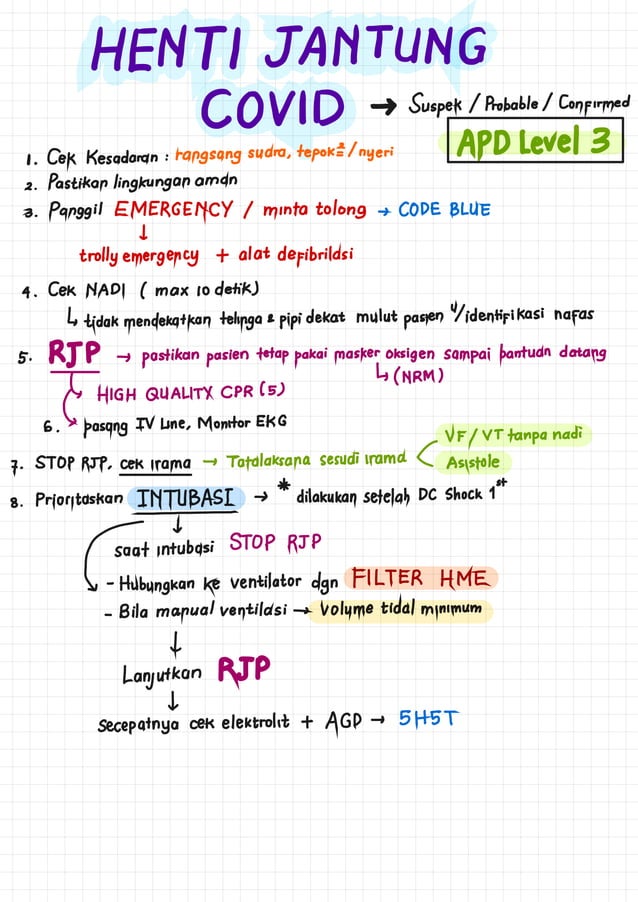 HENTI JANTUNG
COVID → Suspek / Probable / Confirmed
APD Level 3
1. Cek Kesadaran : rangsang suara, tepok² / nyeri
2. Pastikan lingkungan aman
3. Panggil EMERGENCY / minta tolong → CODE BLUE
↓
trolly emergency + alat defibrilasi
4. Cek NADI ( max 10 detik)
↳ tidak mendekatkan telinga & pipi dekat mulut pasien u/identifikasi nafas
5. RJP → pastikan pasien tetap pakai masker oksigen sampai bantuan datang
↳ (NRM)
HIGH QUALITY CPR (5)
6. pasang IV Line, Monitor EKG
7. STOP RJP, cek irama → Tatalaksana sesuai irama < VF / VT tanpa nadi
Asistole
8. Prioritaskan INTUBASI → * dilakukan setelah DC Shock 1st
↓
saat intubasi STOP RJP
- Hubungkan ke ventilator dgn FILTER HME
- Bila manual ventilasi → Volume tidal minimum
↓
Lanjutkan RJP
↓
Secepatnya cek elektrolit + AGD → 5H5T